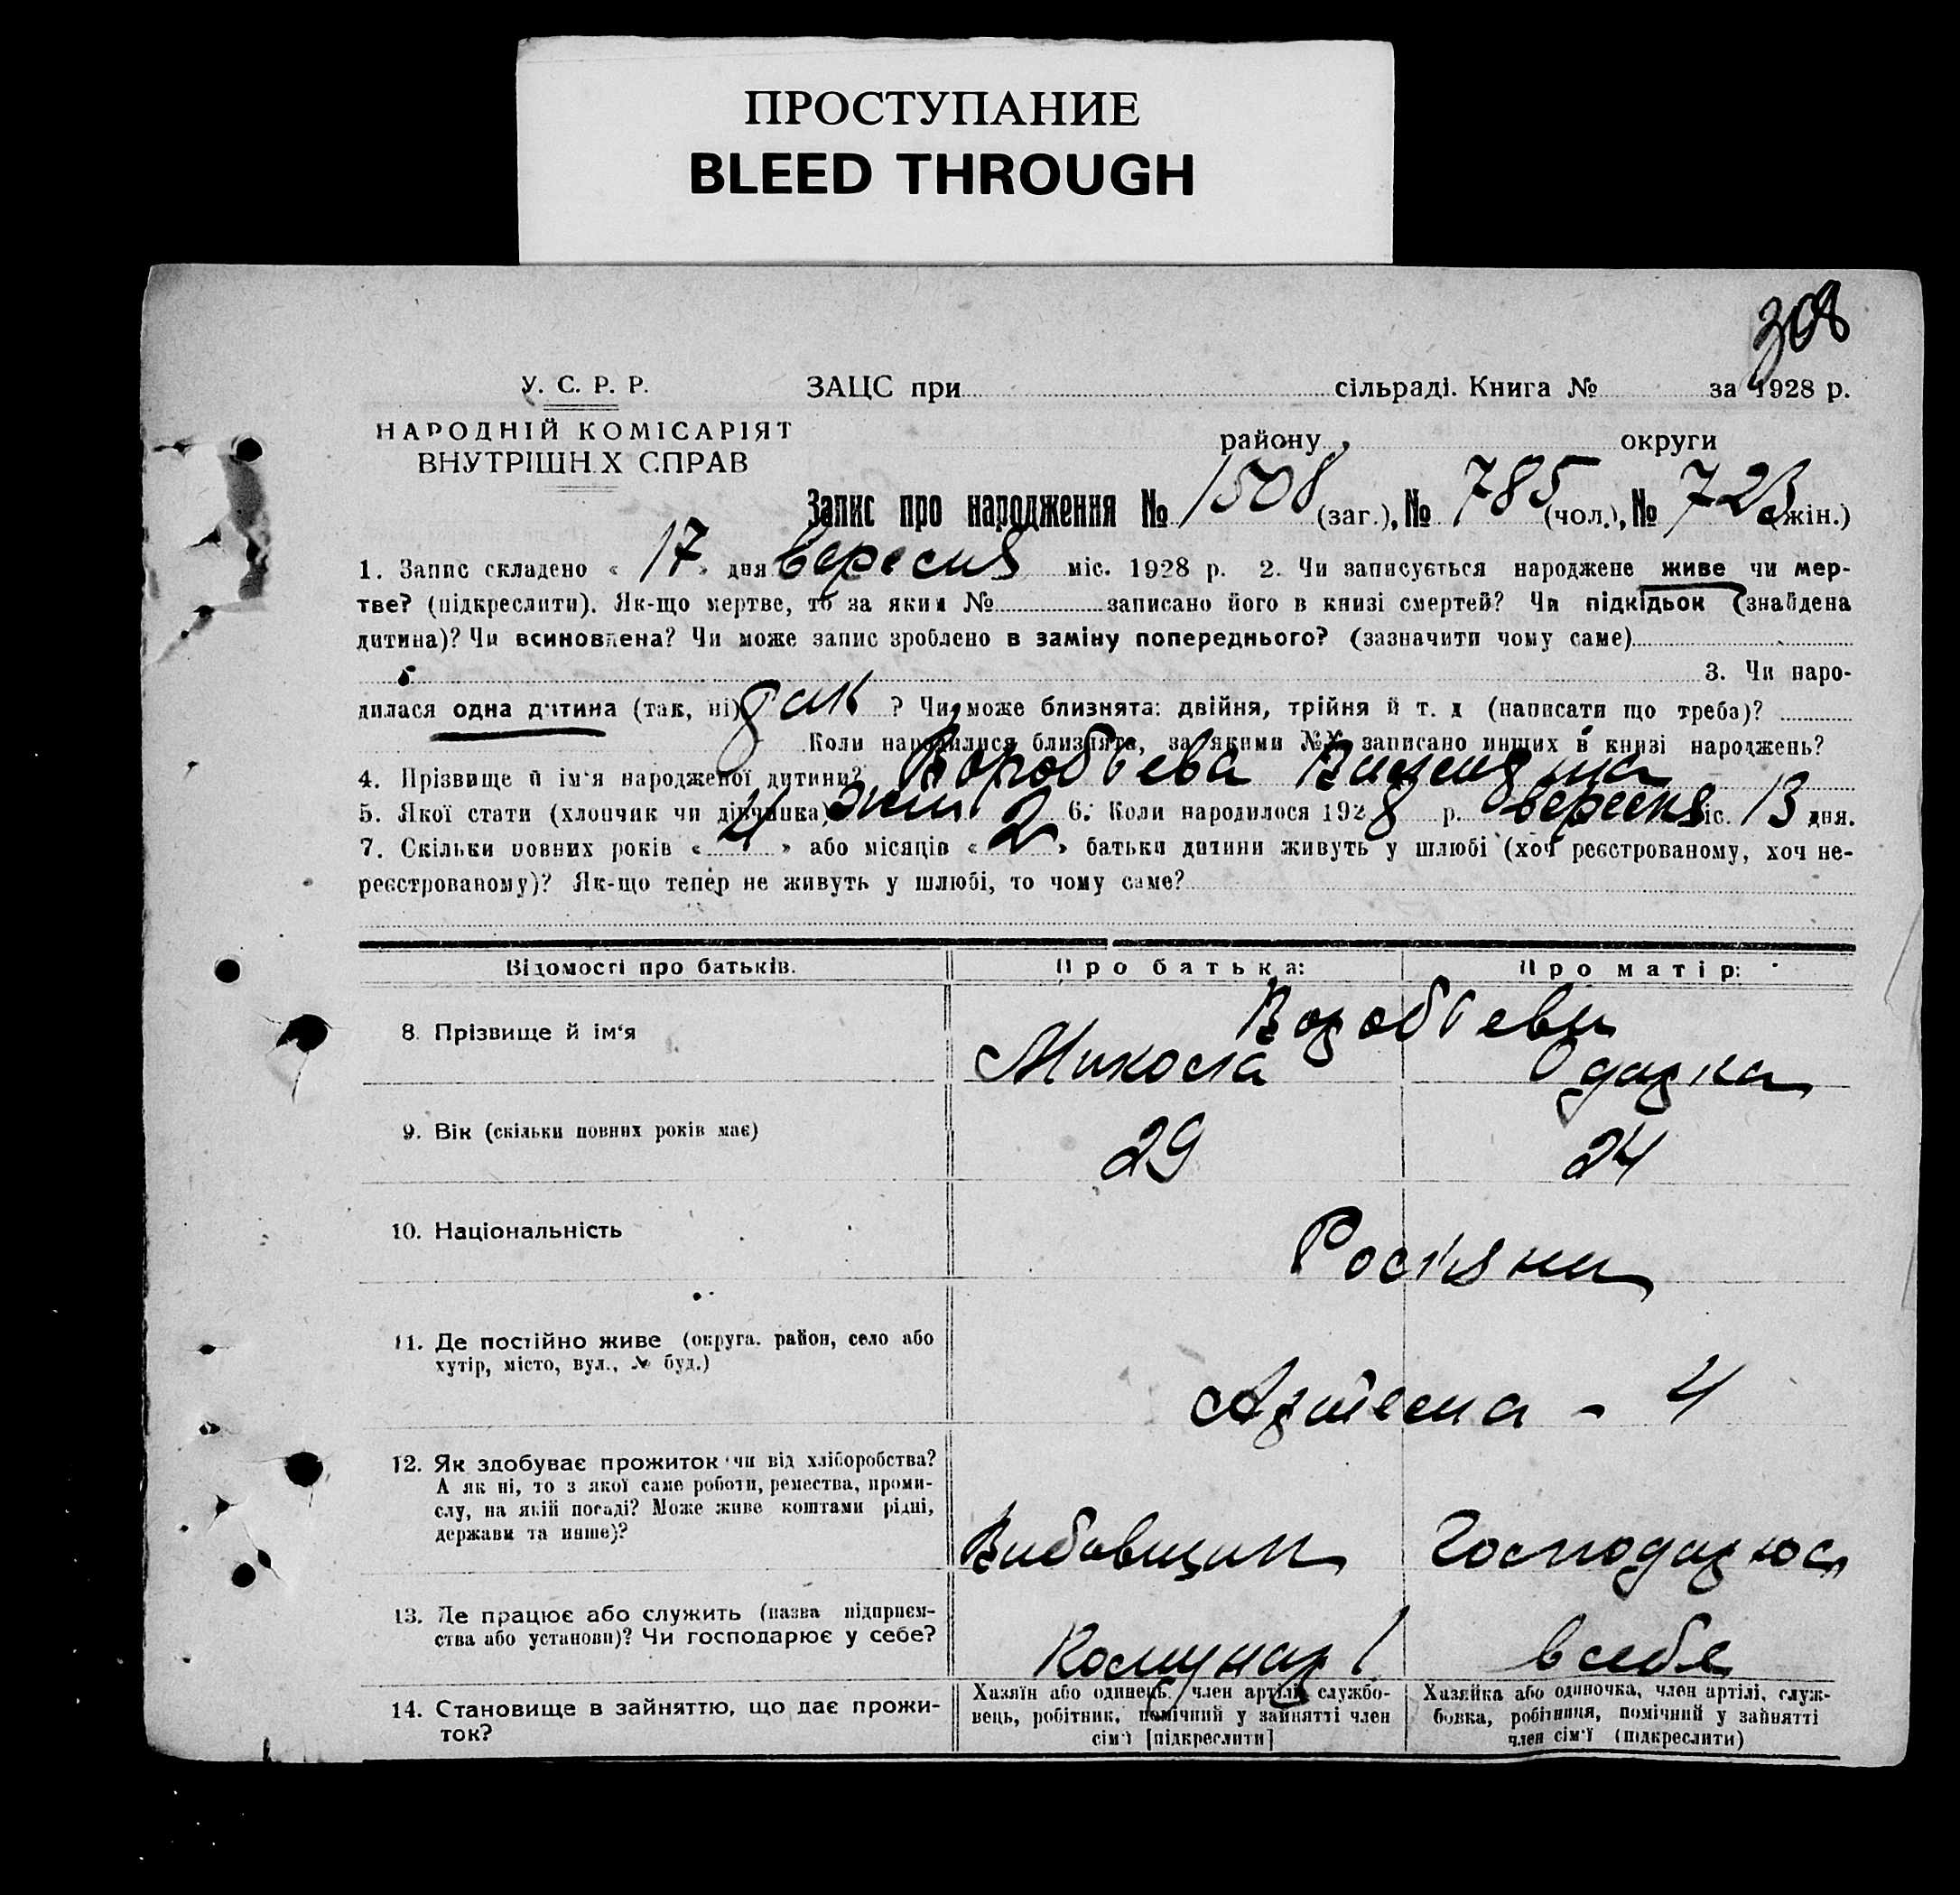 ПРОСТУПАНИЕ
BLEED THROUGH
308
У. С. Р. Р.
НАРОДНІЙ КОМІСАРІЯТ
ВНУТРІШН.Х СПРАВ
ЗАЦС при сільраді. Книга № за 1928 р.
району, округи
Запис про народження № 1508 (заг.), № 785 (чол.), № 723 (жін.)
1. Запис складено « 17 » дня вересня міс. 1928 р. 2. Чи записується народжене живе чи мер-
тве? (підкреслити). Як-що мертве, то за яким № записано його в книзі смертей? Чи підкідьок (знайдена
дитина)? Чи всиновлена? Чи може запис зроблено в заміну попереднього? (зазначити чому саме)
3. Чи наро-
дилася одна дитина (так, ні) так ? Чи може близнята: двійня, трійня й т. д (написати що треба)?
Коли народилися близнята, за якими №№ записано инших в книзі народжень?
4. Прізвище й ім'я народженої дитини? Воробʼева
5. Якої стати (хлопчик чи дівчинка) жін 6. Коли народилося 1928 р. вересня міс. 13 дня.
7. Скільки повних років « 4 » або місяців « 2 » батьки дитини живуть у шлюбі (хоч реєстрованому, хоч не-
реєстрованому)? Як-що тепер не живуть у шлюбі, то чому саме?
Відомості про батьків. Про батька: Про матір:
8. Прізвище й ім'я Воробʼеви
Микола Одарка
9. Вік (скільки повних років має) 29 24
10. Національність Росіяни
11. Де постійно живе (округа, район, село або
хутір, місто, вул., № буд.)
Артема - 4
12. Як здобуває прожиток чи від хліборобства?
А як ні, то з якої саме роботи, ремества, проми-
слу, на якій посаді? Може живе коштами рідні,
держави та инше)?
Вибавщик Господарює
13. Де працює або служить (назва підприєм-
ства або установи)? Чи господарює у себе?
Комунар 1 в себе
14. Становище в зайняттю, що дає прожи-
ток?
Хазяїн або одинець, член артілі, службо-
вець, робітник, помічний у зайнятті член
сім'ї [підкреслити]
Хазяйка або одиночка, член артілі, служ-
бовка, робітниця, помічний у зайнятті
член сім'ї (підкреслити)